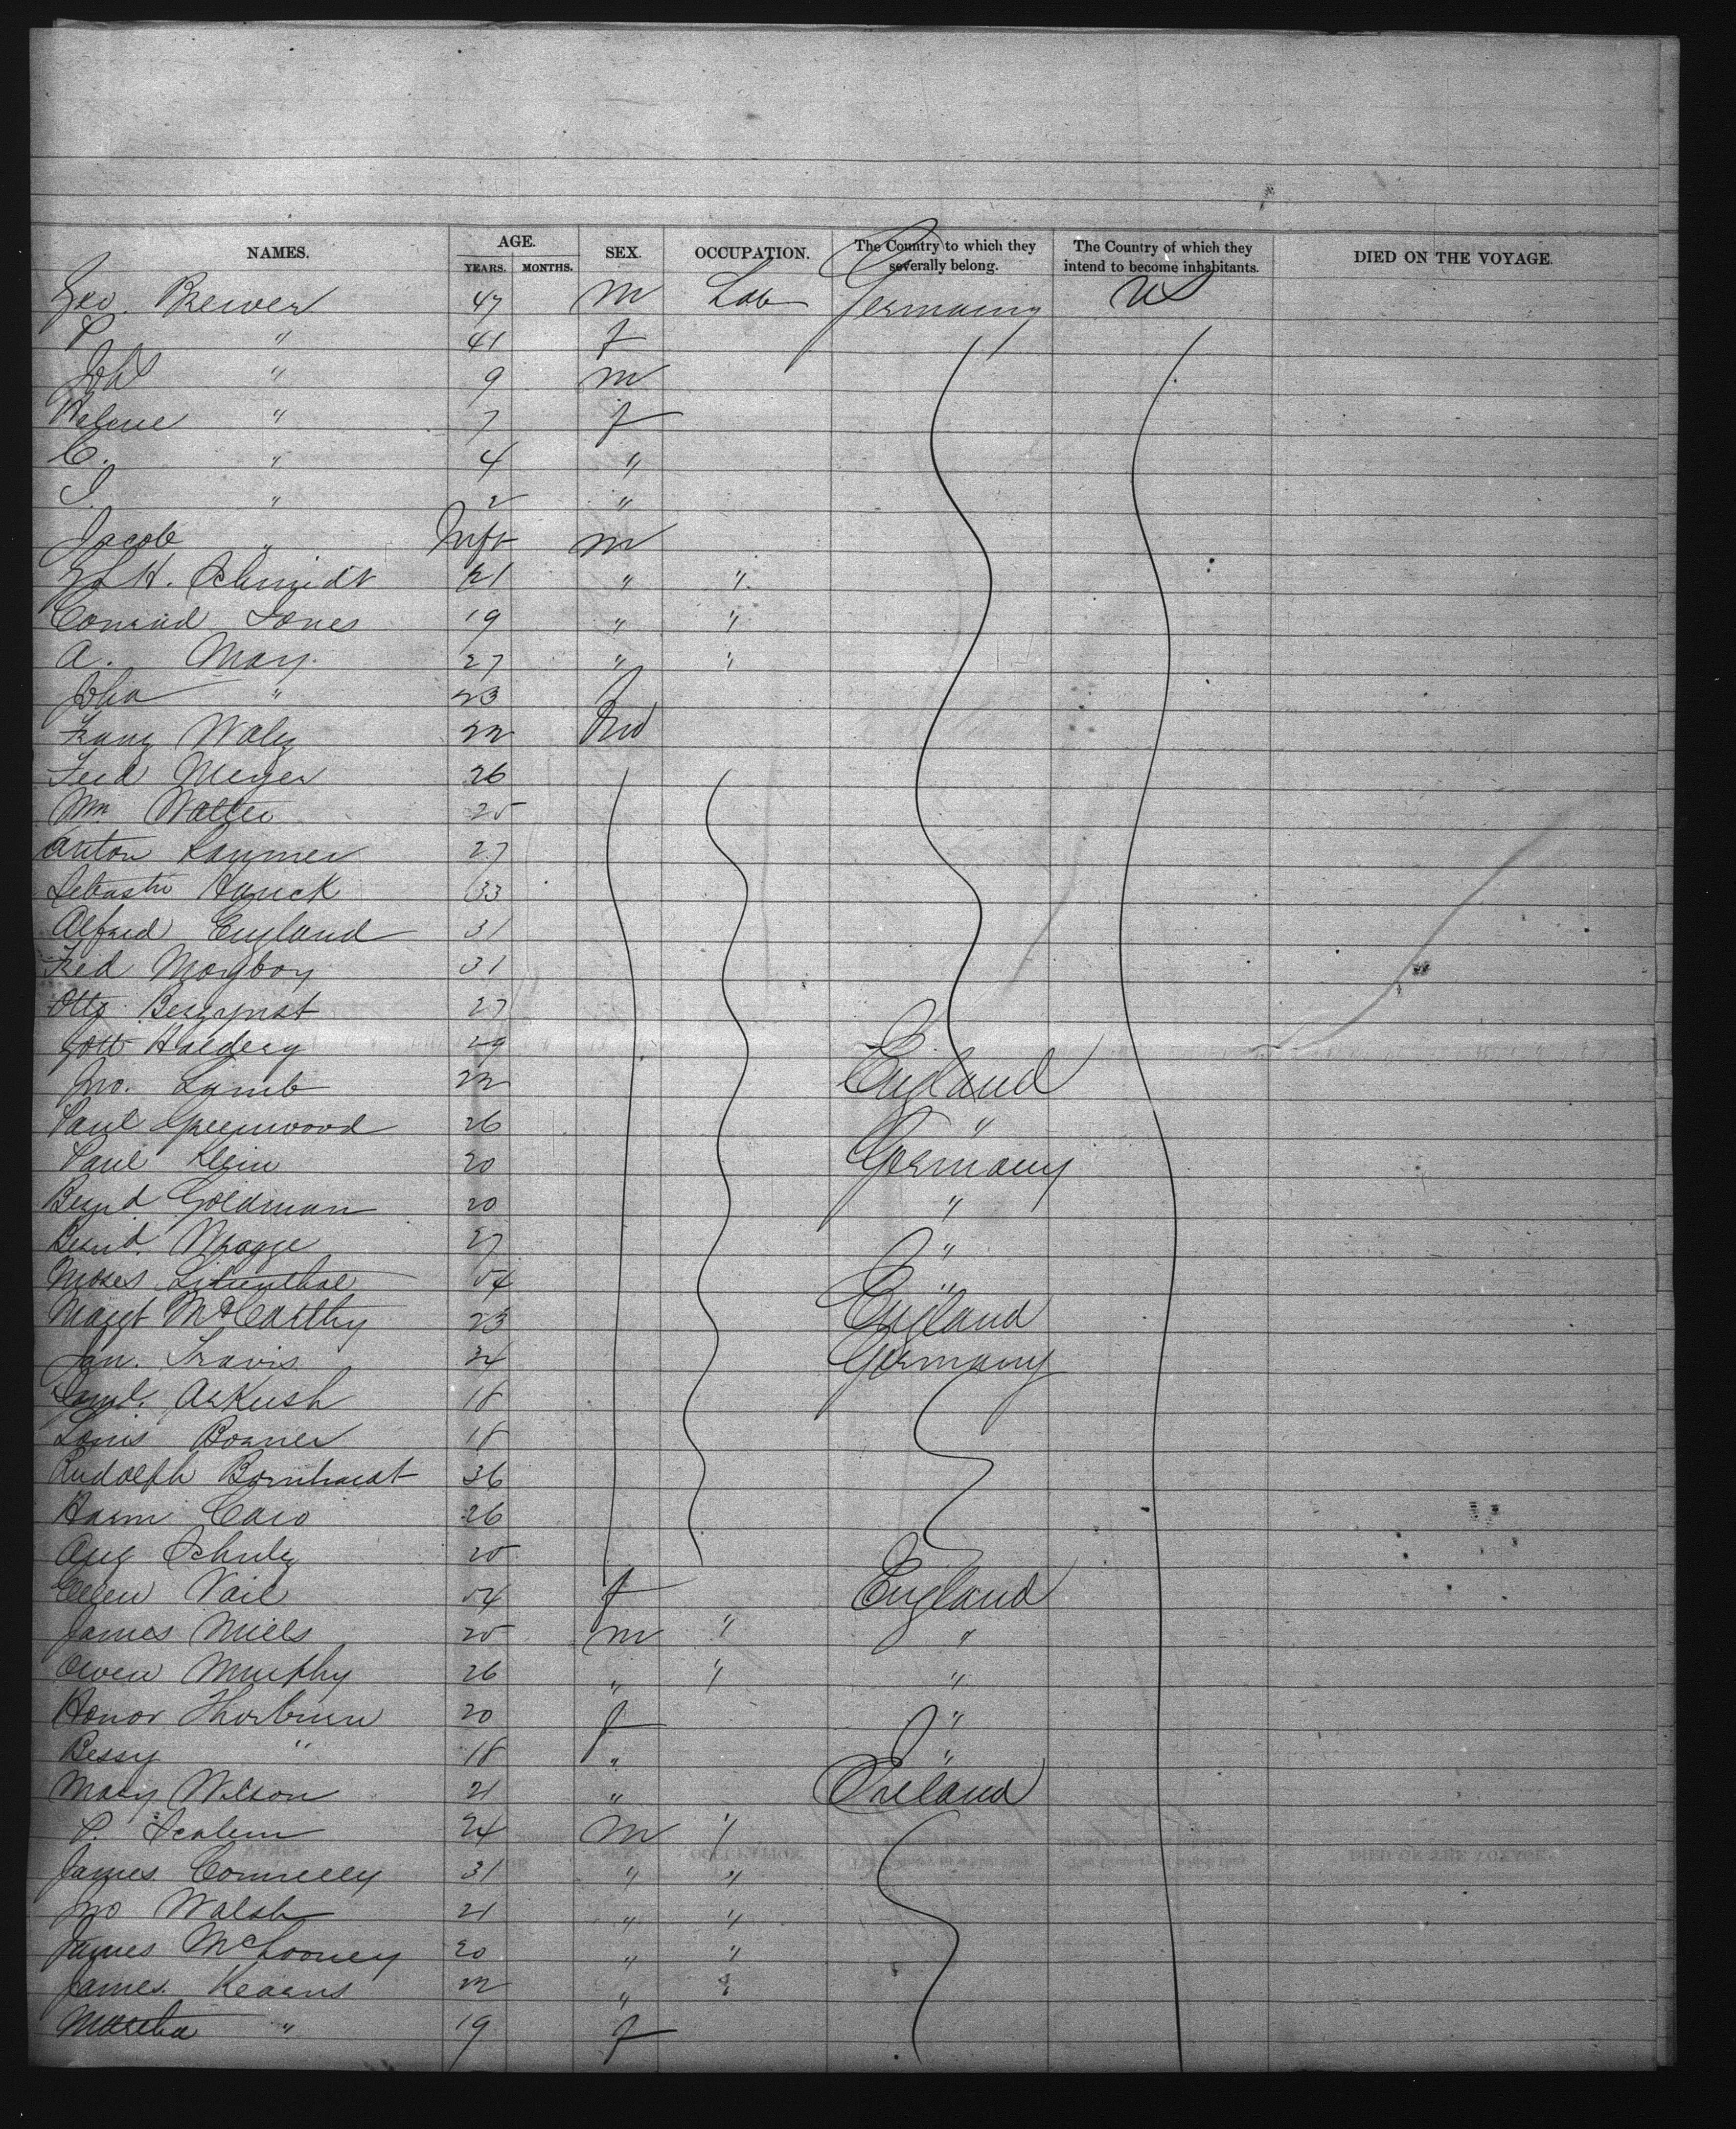 NAMES. AGE. YEARS. MONTHS. SEX. OCCUPATION. The Country to which they severally belong. The Country of which they intend to become inhabitants. DIED ON THE VOYAGE.
Geo. Brewer 47 m Lab Germany US
P " 41 f
Joh " 9 m
Helene " 7 f
C. " 4 "
J. " 2 "
Jacob " Inft m
H. Schmidt 21 " "
Conrad Jones 19 " "
A. May 27 " "
" 23 f
Franz Walz 22 m
Ferd Meyer 26
Wm Walter 25
Anton 27
33
Alfred England 31
Fred 31
Otto Bergqvist 27
29
Jno. Lamb 22 England
Paul Greenwood 26 "
Paul Klein 20 Germany
Bernd Goldman 20 "
Bernd. 27 "
Moses Lilienthal 54 "
Margt McCarthy 23 England
Jan. Travis 24 Germany
Saml. Arkush 18
Louis 18
Rudolph Bornhardt 36
Caro 26
Aug Schulz 25
Ellen Vail 54 f England
James Mills 25 m " "
Owen Murphy 26 " " "
Honor Thorburn 20 f "
Bessy " 18 " "
Mary Wilson 21 " Ireland
P. 24 m "
James Connelly 31 " "
Jno Walsh 21 " "
James McLooney 20 " "
James Kearns 22 " "
Martha " 19 f